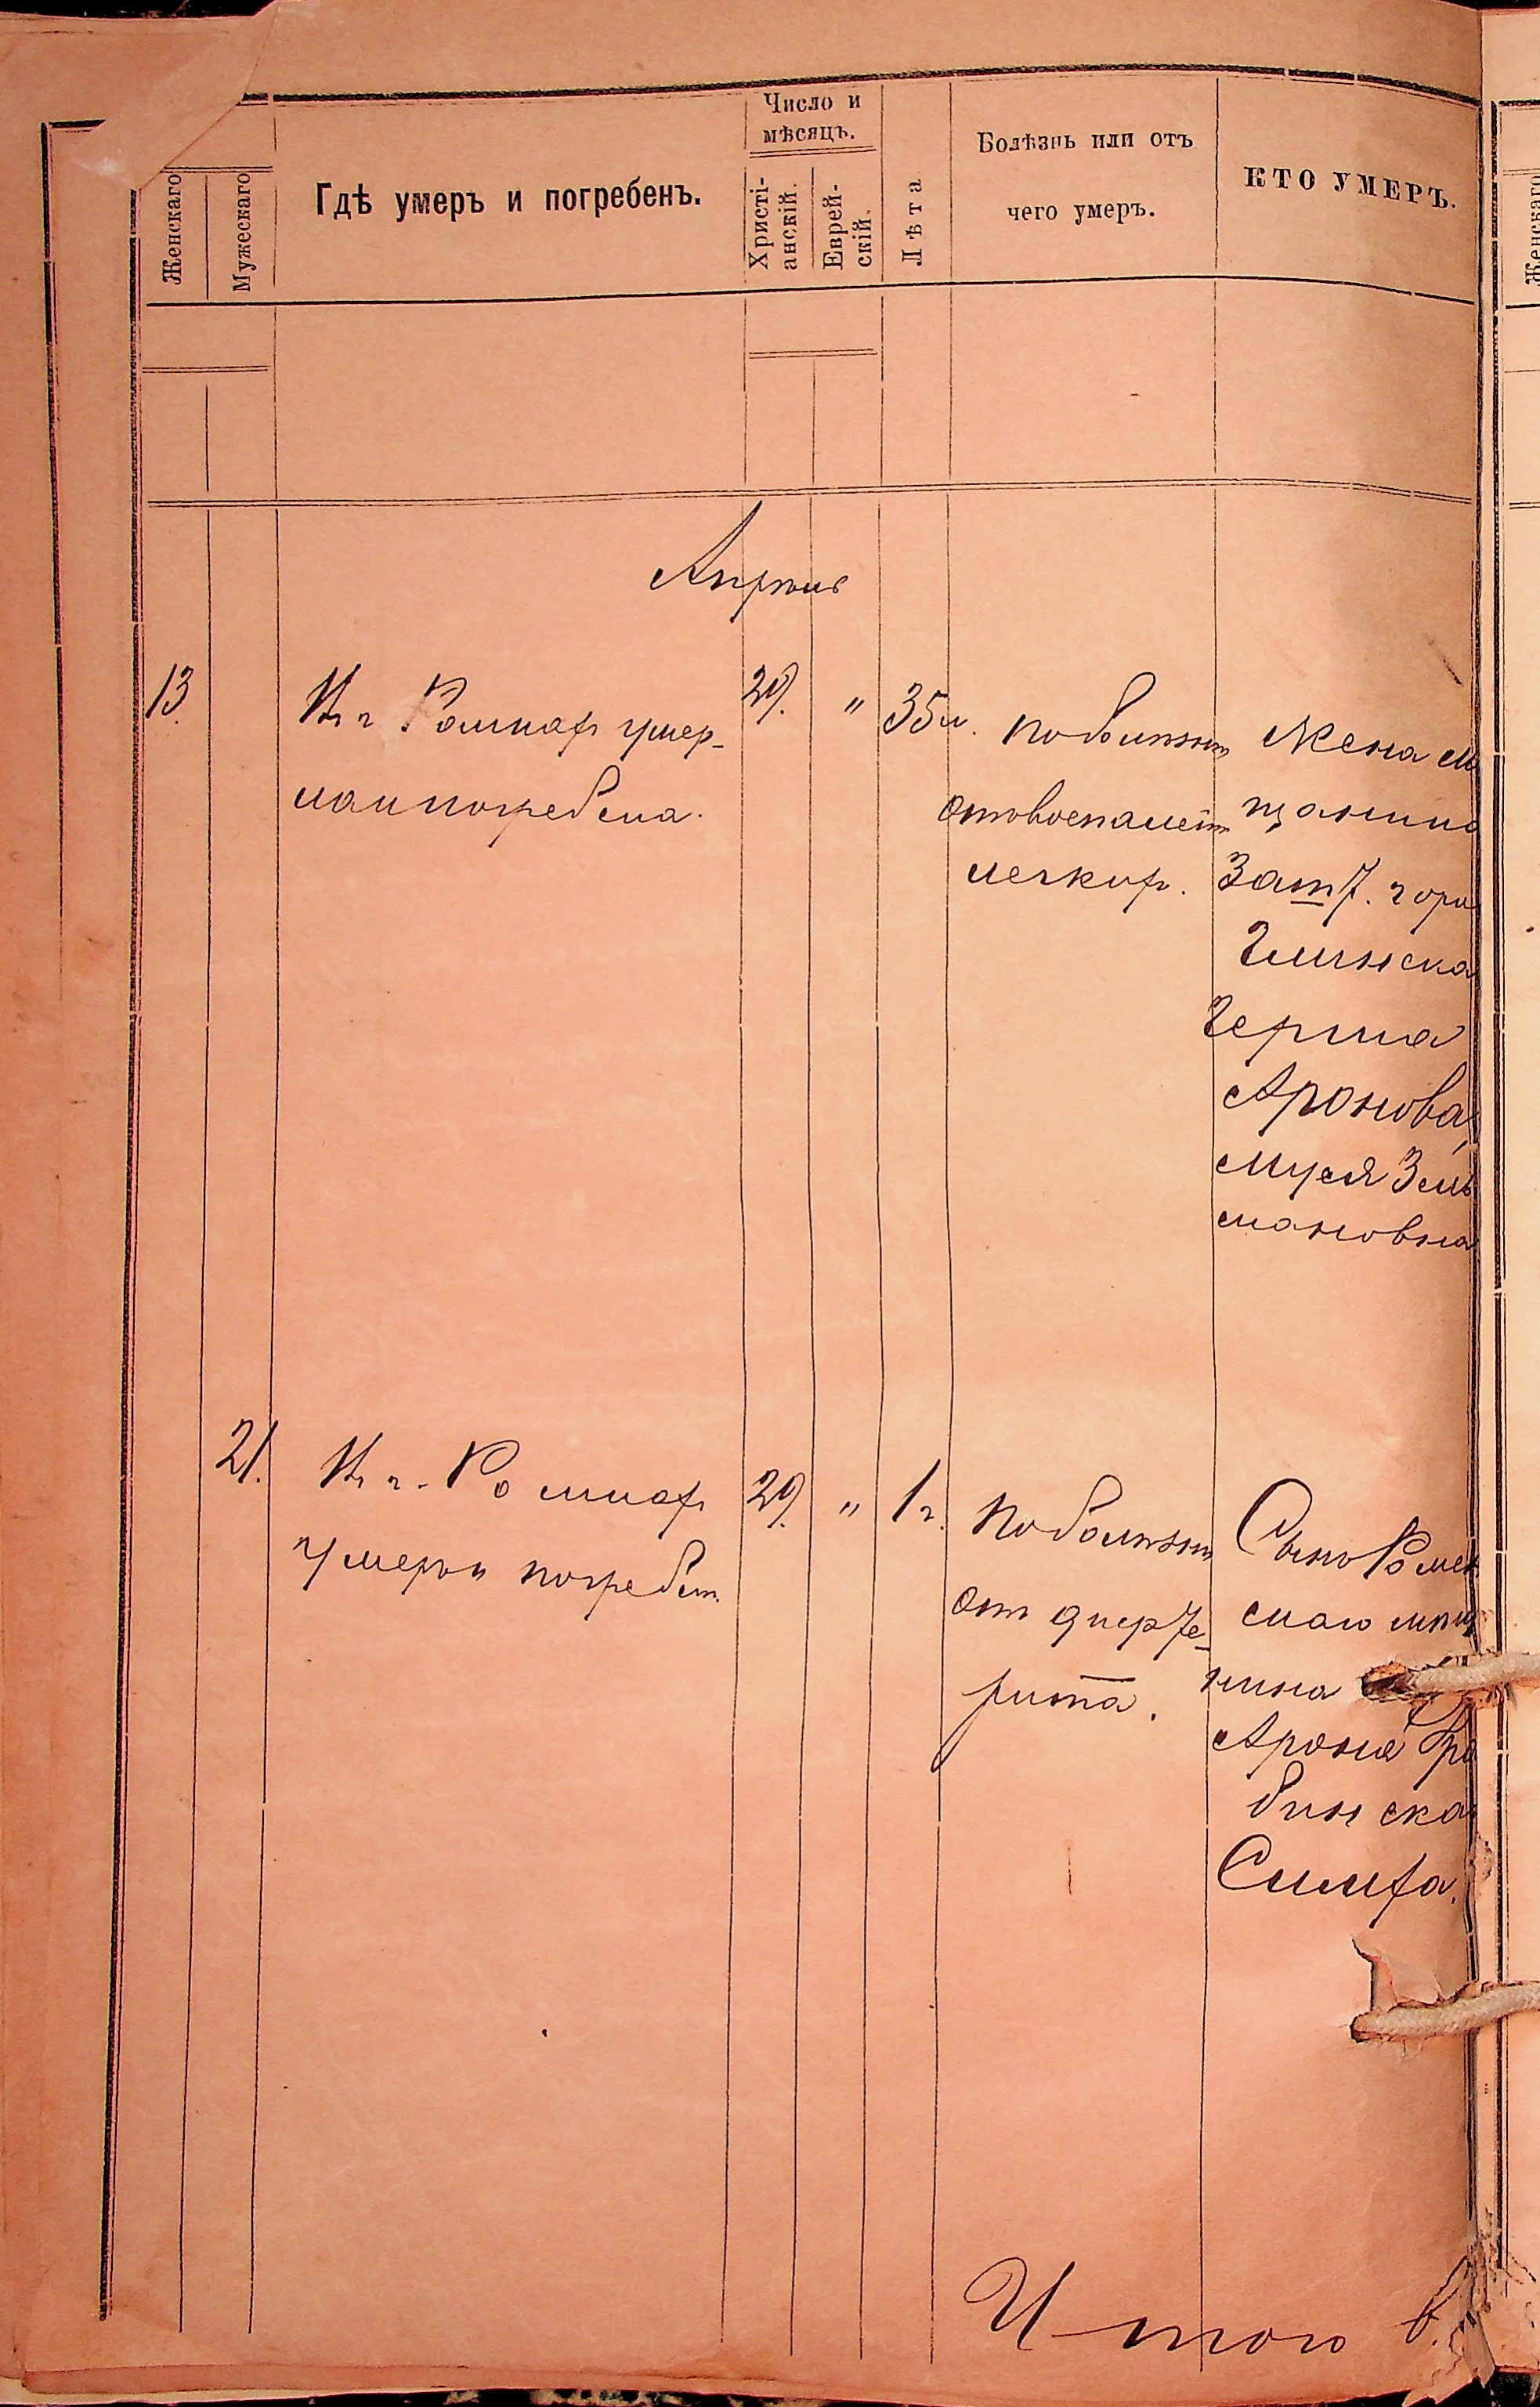 Женскаго
Мужескаго
Гдѣ умеръ и погребенъ.
Число и
мѣсяцъ.
Христі-
анскій.
Еврей-
скій.
Лѣта
Болѣзнь или отъ
чего умеръ.
КТО УМЕРЪ.
Женскаго
Апрѣль
13.
Въ г. Ромнахъ умер-
ла и погребена.
29.
"
35 л.
по болѣзни
отъ воспален
легкихъ.
Жена мѣ
щанина
Зашт. горо
Глинска
Герша
Аронова,
Муся Зель
мановна
21.
Въ г. Ромнахъ
умеръ и погребен.
29.
"
1 г.
по болѣзни
отъ диф̾те-
рита.
Сынъ Ромен
скаго мѣщ
нина
Арона
бинска
Симха.
Итого